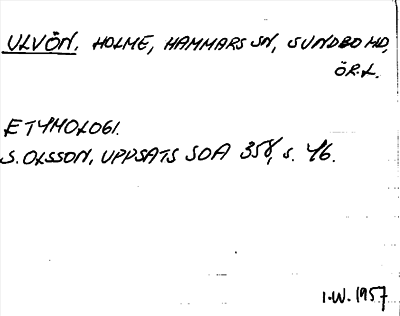 ULVÖN. HOLME, HAMMARS SN, SUNDBO HD,
ÖR.L.
ETYMOLOGI.
S. OLSSON, UPPSATS SOA 358, S. 46.
I.W. 1957